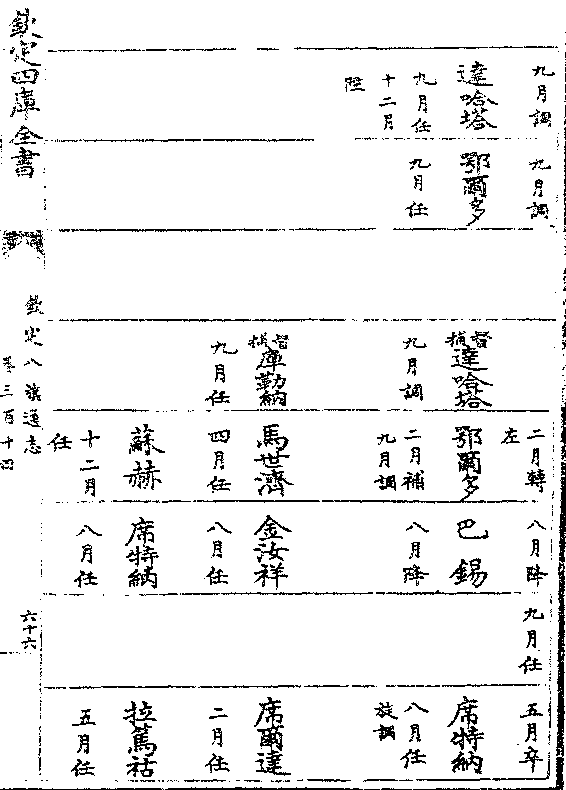 九月調
達哈塔
九月任
十二月
陞
九月調
鄂爾多
九月任
督捕達哈塔
九月調
督捕庫勒納
九月任
二月轉
左
鄂爾多
二月補
九月調
馬世濟
四月任
蘇赫
十二月
任
八月降
巴錫
八月降
金汝祥
八月任
席特納
八月任
九月任
五月卒
席特納
八月任
旋調
席爾達
二月任
拉篤祜
五月任
欽定四庫全書
欽定八旗通志
卷三百十四
六十六